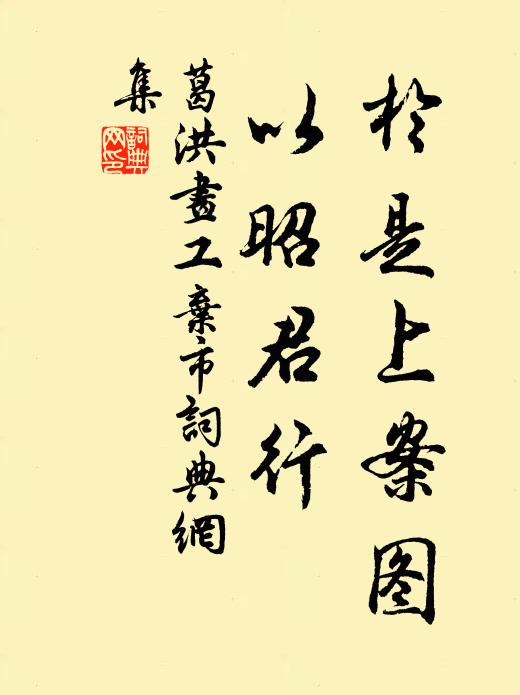 於是上案图
以昭君行
葛洪畫工棄市詞典網
集
詞典
网印